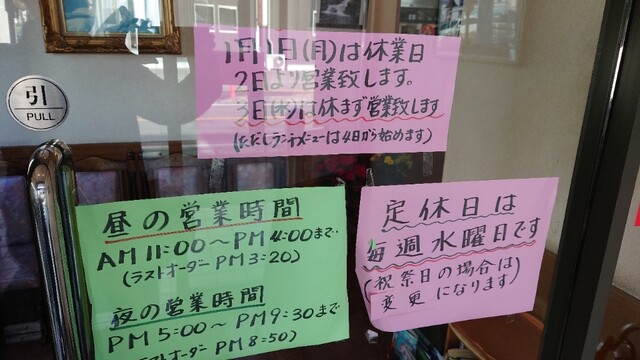 引
PULL
1月1日(月)は休業日
2日より営業致します。
3日(水)は休まず営業致します
(ただしランチメニューは4日から始めます)
昼の営業時間
AM 11:00～PM 4:00まで
(ラストオーダー PM 3:20)
夜の営業時間
PM 5:00～PM 9:30まで
ラストオーダー PM 8:50)
定休日は
毎週水曜日です
(祝祭日の場合は
変更になります)